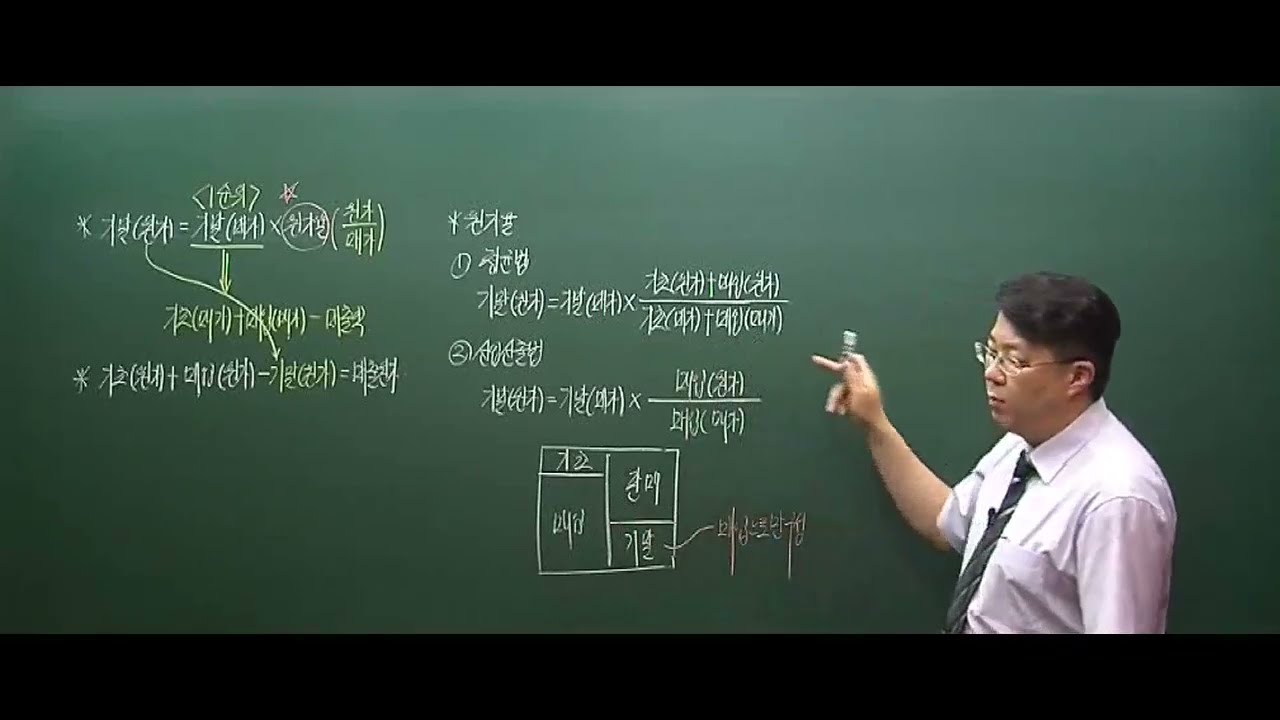 <1순위> ☆
* 기말(원가) = 기말(매가) × 원가율 (원가/매가)
기초(매가) + 매입(매가) - 매출액
* 기초(원가) + 매입(원가) - 기말(원가) = 매출원가
* 원가율
① 평균법
기말(원가) = 기말(매가) × 기초(원가) + 매입(원가) / 기초(매가) + 매입(매가)
② 선입선출법
기말(원가) = 기말(매가) × 매입(원가) / 매입(매가)
기초
매입
판매
기말
매입으로만 구성